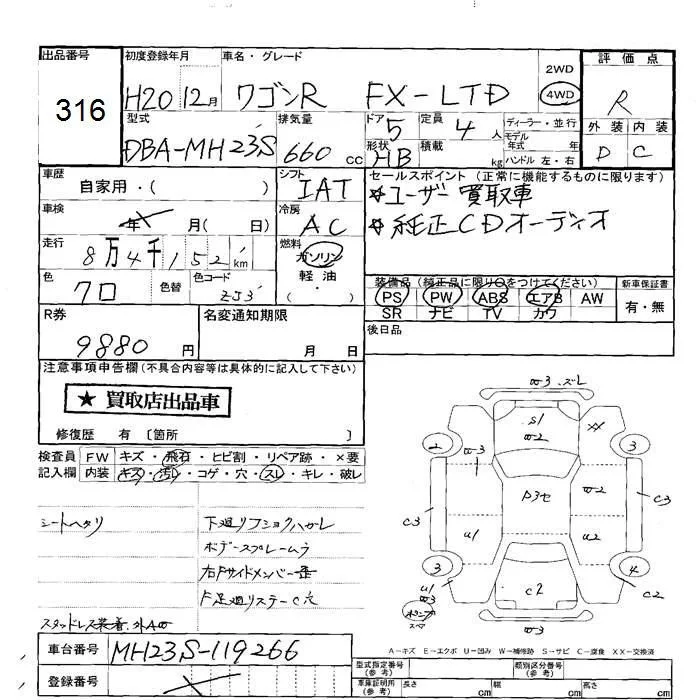 出品番号
316
初度登録年月
H20 12月
車名・グレード
ワゴンR FX-LTD
2WD
4WD
評価点
R
外装 内装
D C
型式
DBA-MH23S
排気量
660 cc
ドア
5
形状
HB
定員
4 人
積載
kg
ディーラー・並行
モデル年式 年
ハンドル 左・右
車歴
自家用・( )
シフト
IAT
セールスポイント (正常に機能するものに限ります)
☆ユーザー買取車
☆純正CDオーディオ
車検
年 月( 日)
冷房
AC
走行
8万4千152km
燃料
ガソリン
軽油
・( )
色
クロ
色替
色コード
ZJ3
装備品 (純正品に限り○をつけてください)
PS PW ABS エアB AW
SR ナビ TV カワ
新車保証書
有・無
R券
9880 円
名変通知期限
月 日
後日品
注意事項申告欄(不具合内容等は具体的に記入して下さい)
★ 買取店出品車
修復歴 有 〔箇所 〕
検査員記入欄
FW キズ・飛石・ヒビ割・リペア跡・×要
内装 キズ・汚レ・コゲ・穴・スレ・キレ・破レ
シートヘタリ
下廻リフショクハガレ
右Fサイドメンバー歪
車台番号
MH23S-119266
登録番号
W3.スレ
S1
W2
XX
2
3
W3
P3セ
W2
C3
C3
U1
U2
3
4
C2
U1
W3
C2
W3
A-キズ E-エクボ U-凹み W-補修跡 S-サビ C-腐食 XX-交換済
型式指定番号
(参考)
類別区分番号
(参考)
車庫証明用
(参考)
長さ cm
幅 cm
高さ cm